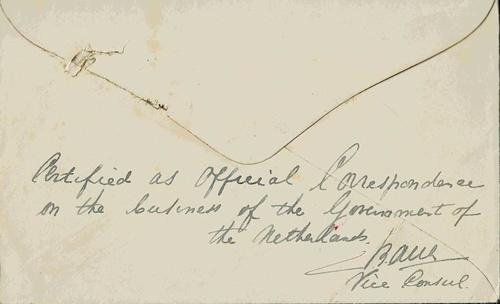 Certified as Official Correspondence
on the business of the Government of
the Netherlands.
Vice Consul.